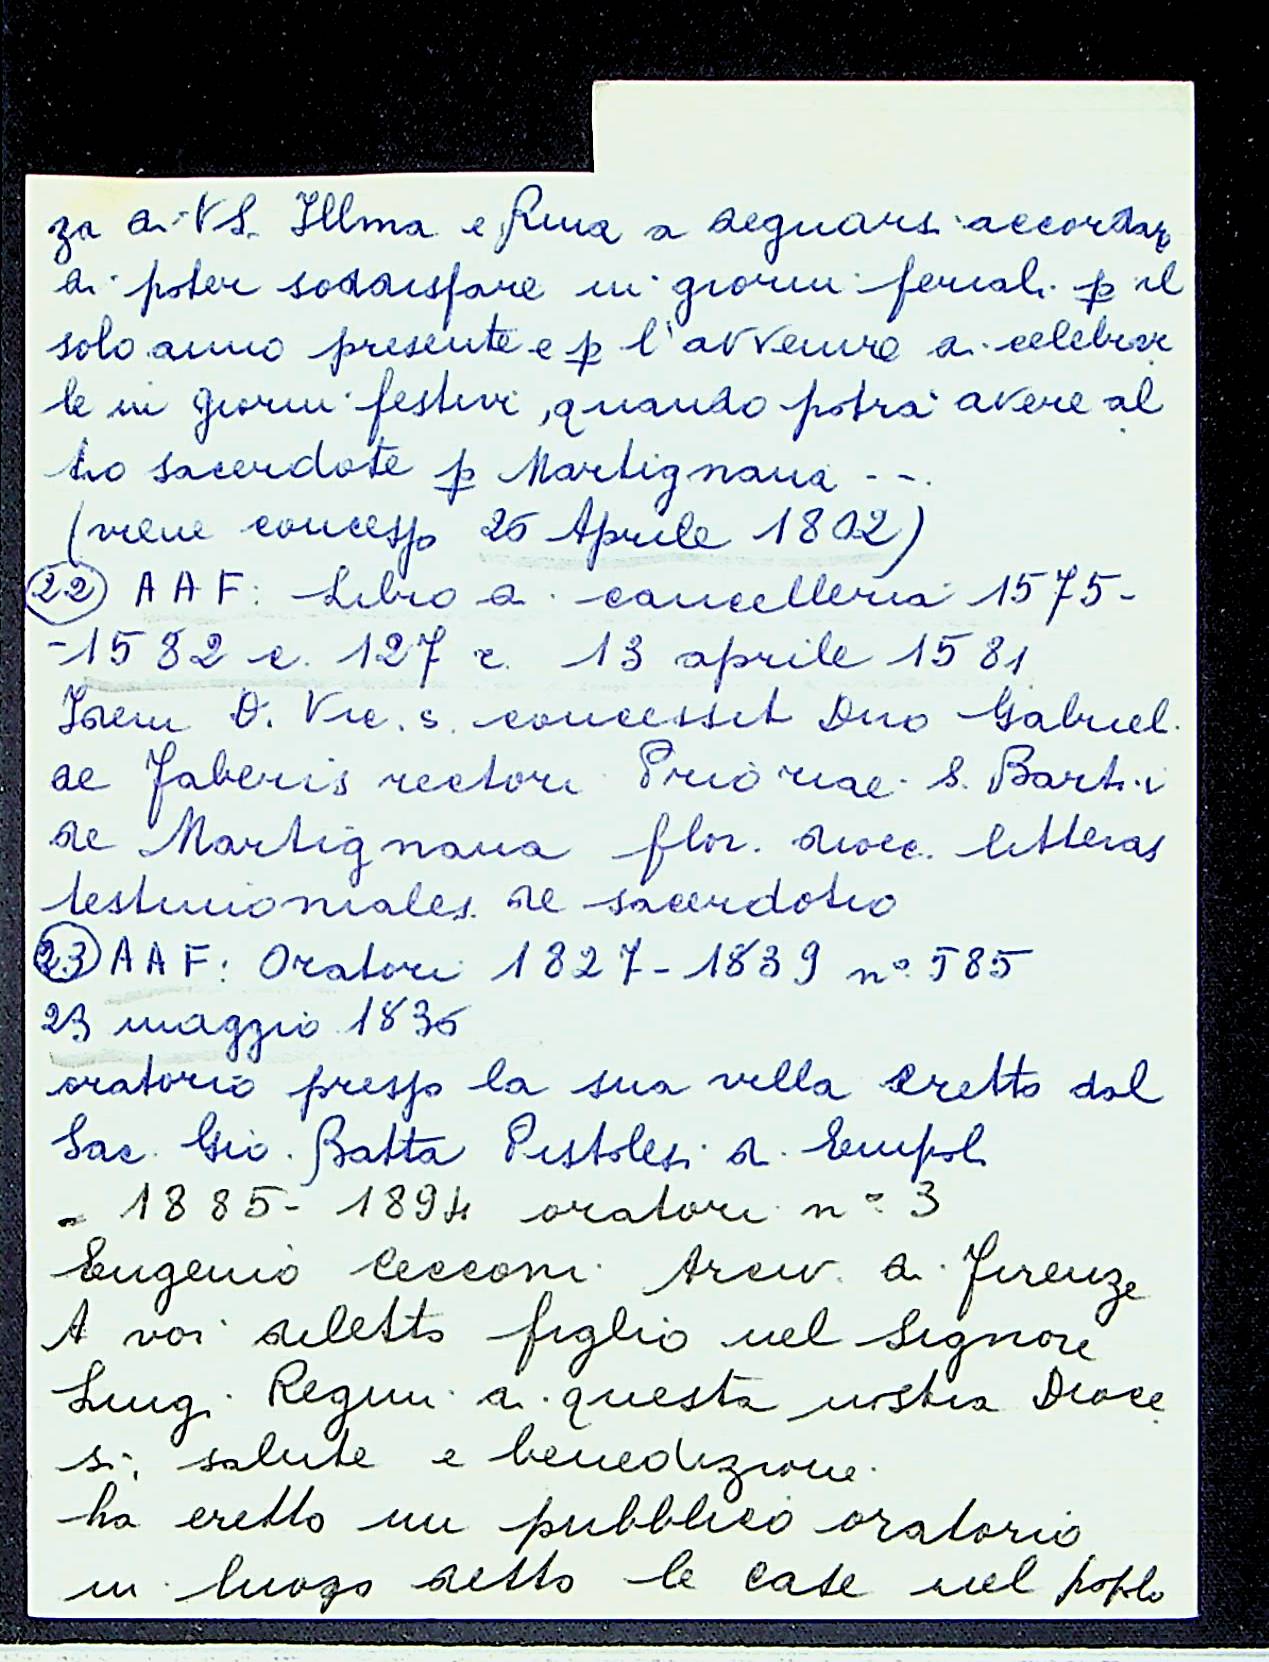 za di VS. Illma e Rma a degnarsi accordar
di poter soddisfare in giorni feriali p il
solo anno presente e p l'avvenire di celebrar
le in giorni festivi, quando potrà avere al
tro sacerdote p Martignana --.
(viene concesso 26 Aprile 1802)
22) AAF: Libro di cancelleria 1575-
-1582 c. 127 r. 13 aprile 1581
Idem D. Vic. s. concessit Dno Gabriel.
de Faberis rectori Prioriae S. Bart.i
de Martignana flor. dioec. litteras
testimoniales de sacerdotio
23) AAF: Oratori 1827-1839 n° 585
23 maggio 1836
oratorio presso la sua villa eretto dal
Sac. Gio. Batta Pistolesi di Empoli
- 1885-1894 oratori n° 3
Eugenio Cecconi Arciv. di Firenze
A voi diletto figlio nel Signore
Luigi Regini di questa nostra Dioce
si, salute e benedizione.
ha eretto un pubblico oratorio
in luogo detto le Case nel popolo